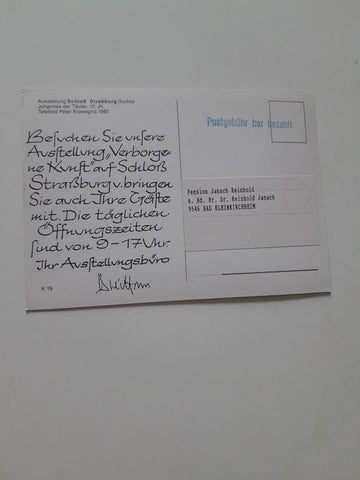 Ausstellung Schloß Straßburg/Gurktal
Johannes der Täufer, 17. Jh.
Tafelbild Peter Krawagna 1987
Postgebühr bar bezahlt
Besuchen Sie unsere
Ausstellung „Verborge-
ne Kunst" auf Schloß
Straßburg u. bringen
Sie auch Ihre Gäste
mit. Die täglichen
Öffnungszeiten
sind von 9-17 Uhr
Ihr Ausstellungsbüro
K 19
Pension Janach Reinhold
z. Hd. Hr. Dr. Reinhold Janach
9546 BAD KLEINKIRCHHEIM